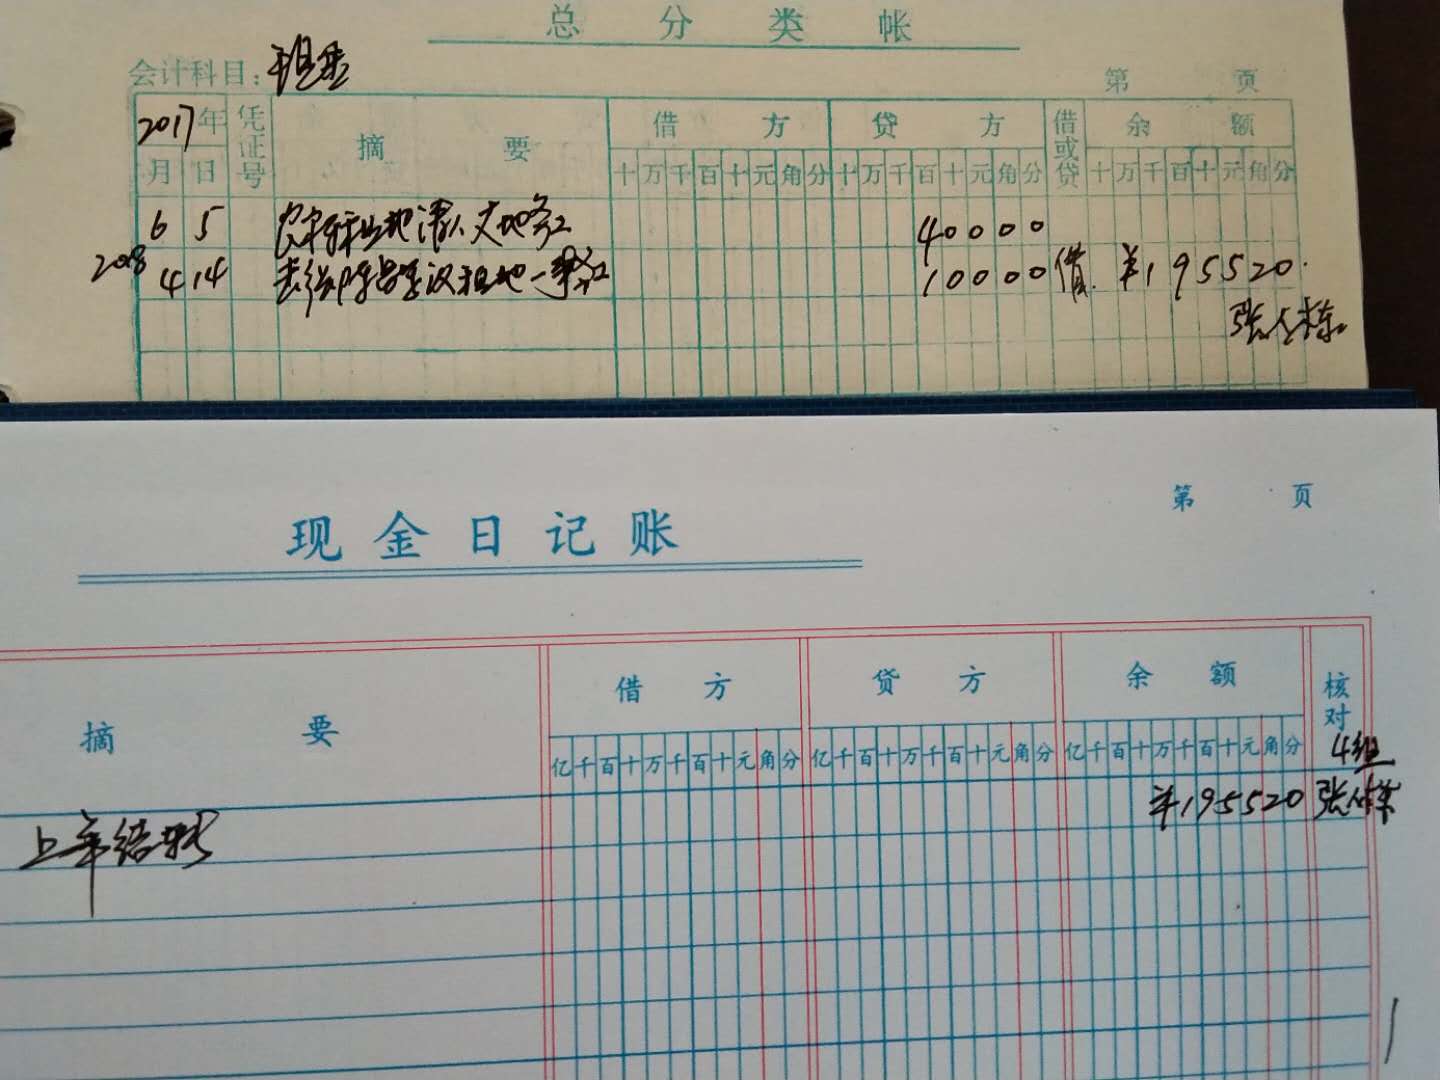 总分类帐
会计科目：现金
第 页
2017年 凭证号 摘要 借方 贷方 借或贷 余额
月 日 十万千百十元角分 十万千百十元角分 十万千百十元角分
6 5 租地请人丈地务工 40000
2018 4 14 去给 租地一事务工 10000 借 ¥195520
张
现金日记账
第 页
摘要 借方 贷方 余额 核对
亿千百十万千百十元角分 亿千百十万千百十元角分 亿千百十万千百十元角分 4组
上年结转 ¥195520 张